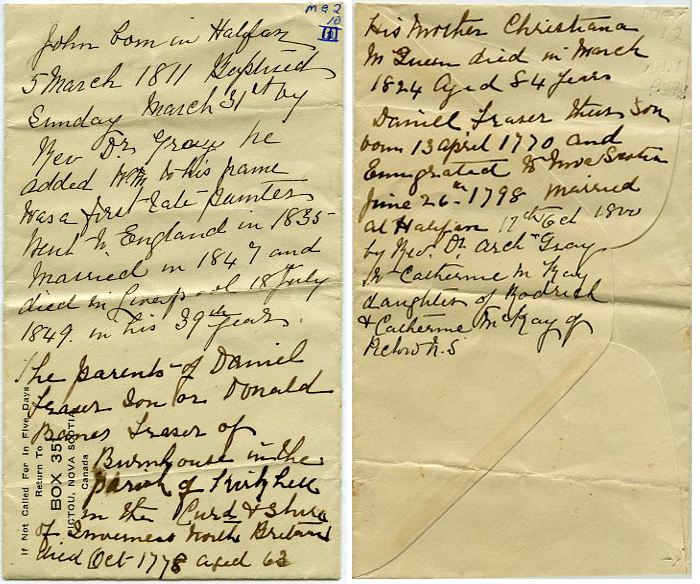 me2
10
III
John born in Halifax
5 March 1811 Baptised
Sunday March 31st by
Rev Dr Gray he
added Wm to his name
Was a first rate painter
Went to England in 1835
Married in 1847 and
died in Liverpool 18th July
1849. in his 39th year
The parents of Daniel
Fraser Son or Donald
Banes Fraser of
Burnhouse in the
parish of Kirkhill
in the & Shire
of Inverness North Britain
Died Oct 1778 aged 63
If Not Called For In Five Days
Return To
BOX 35
PICTOU, NOVA SCOTIA
Canada
His Mother Christiana
McQueen died in March
1824 Aged 84 years
Daniel Fraser their Son
born 13 april 1770 and
Emigrated to Nova Scotia
June 26th 1798 Married
at Halifax 17th Oct 1800
by Rev. Dr. Archd Gray
to Catherine McKay
daughter of Rodrick
& Catherine McKay of
Pictou N.S